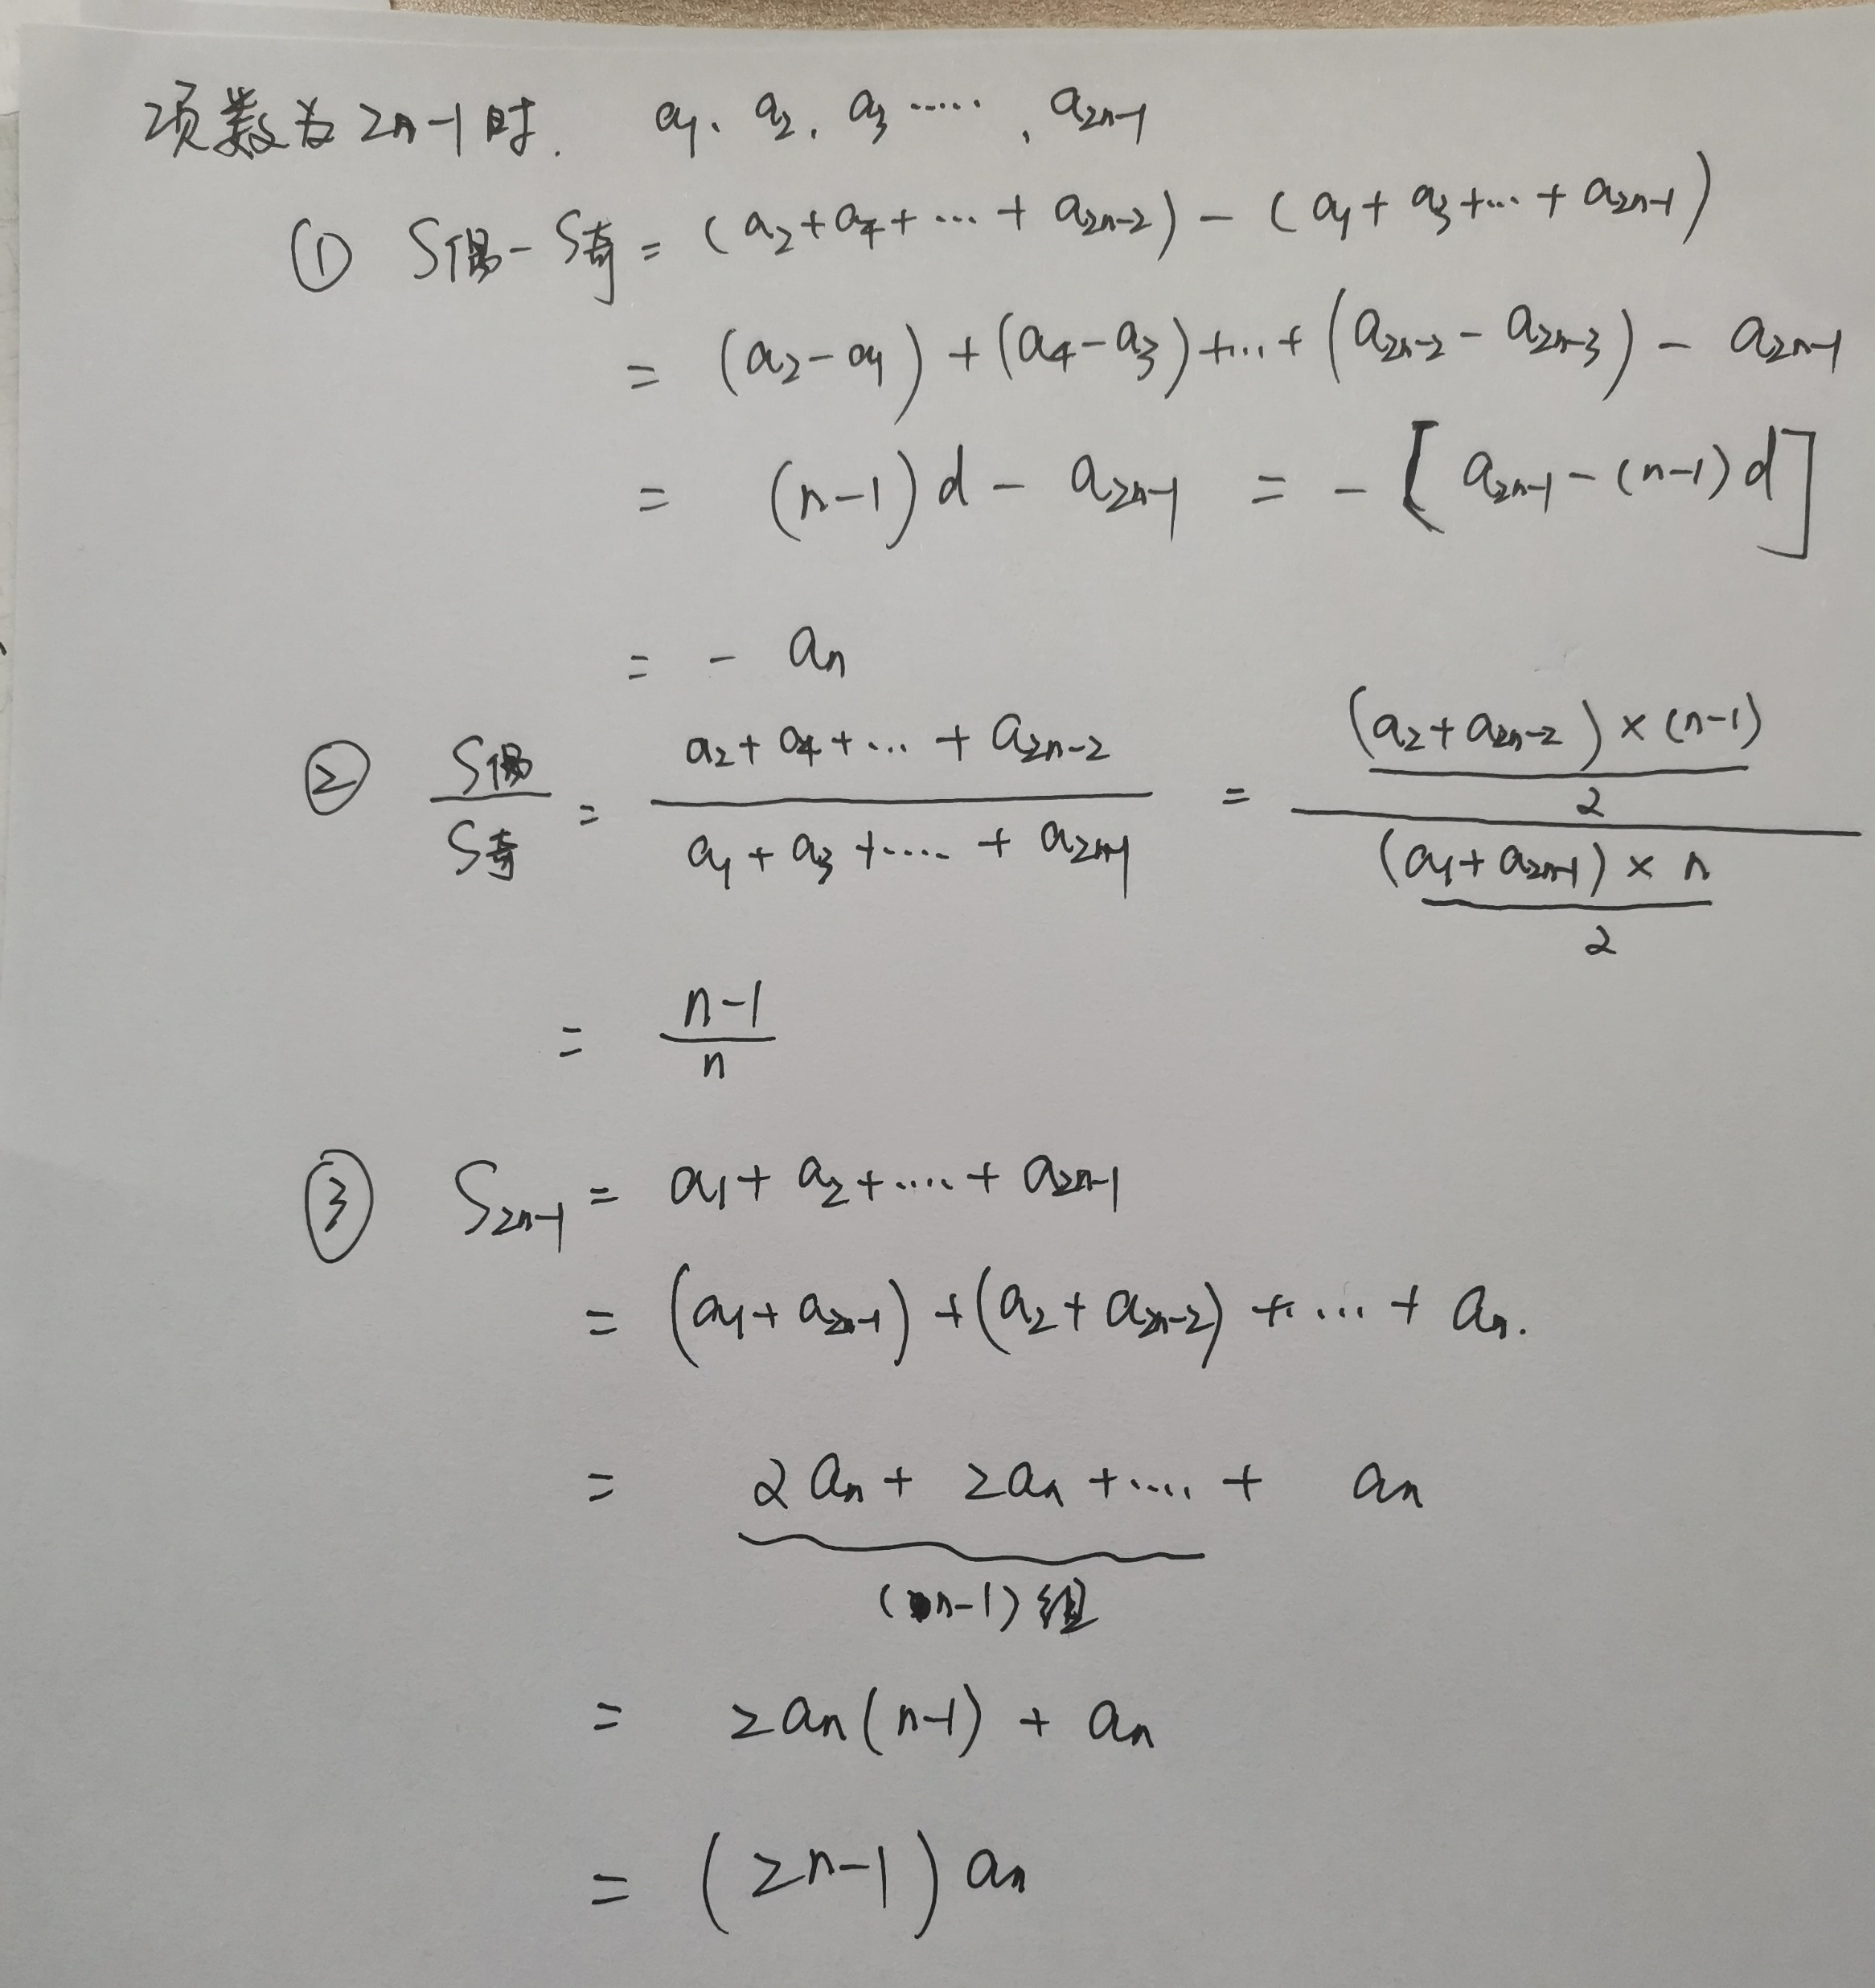 项数为2n-1时. a₁、a₂, a₃ ……, a₂ₙ₋₁
① S偶-S奇 = (a₂+a₄+…+a₂ₙ₋₂) - (a₁+a₃+…+a₂ₙ₋₁)
= (a₂-a₁)+(a₄-a₃)+…+(a₂ₙ₋₂-a₂ₙ₋₃)-a₂ₙ₋₁
= (n-1)d-a₂ₙ₋₁ = -[a₂ₙ₋₁-(n-1)d]
= -aₙ
② S偶/S奇 = (a₂+a₄+…+a₂ₙ₋₂)/(a₁+a₃+…+a₂ₙ₋₁) = ((a₂+a₂ₙ₋₂)×(n-1)/2)/((a₁+a₂ₙ₋₁)×n/2)
= (n-1)/n
③ S₂ₙ₋₁ = a₁+a₂+…+a₂ₙ₋₁
= (a₁+a₂ₙ₋₁)+(a₂+a₂ₙ₋₂)+…+aₙ.
= 2aₙ+2aₙ+…+aₙ
(n-1)组
= 2aₙ(n-1)+aₙ
= (2n-1)aₙ